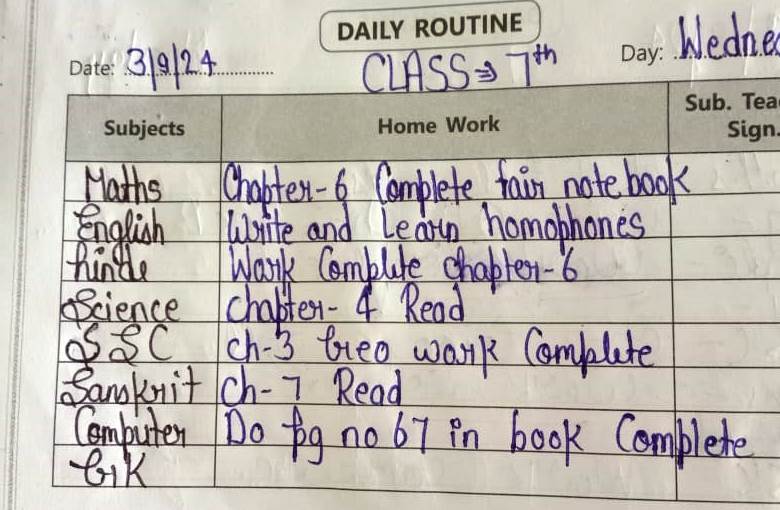 DAILY ROUTINE
Date: 3/9/24 CLASS ⇒ 7th Day: Wednes
Subjects Home Work Sub. Tea
Sign.
Maths Chapter-6 Complete fair note book
English Write and Learn homophones
hinde Wark Complite chapter-6
Science chapter-4 Read
SSC ch-3 Greo wark Complete
Sanskrit ch-7 Read
Computer Do pg no 67 in book Complete
GK